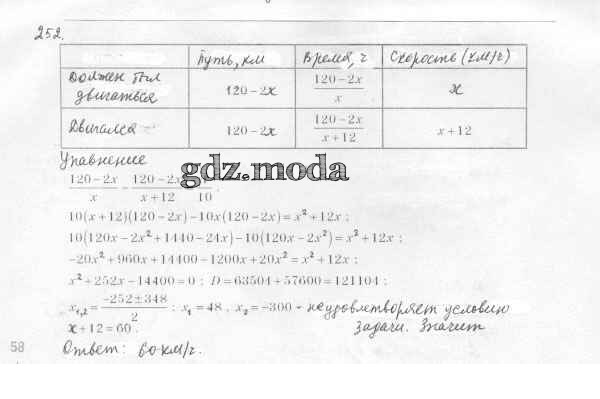 252.
Путь, км Время, ч Скорость (км/ч)
Должен был двигаться 120−2x (120−2x)/x x
Двигался 120−2x (120−2x)/(x+12) x+12
Уравнение
gdz.moda
(120−2x)/x − (120−2x)/(x+12) 10
10(x+12)(120−2x)−10x(120−2x)=x²+12x ;
10(120x−2x²+1440−24x)−10(120x−2x²)=x²+12x ;
−20x²+960x+14400−1200x+20x²=x²+12x ;
x²+252x−14400=0 ; D=63504+57600=121104 ;
x₁,₂=(−252±348)/2 ; x₁=48 , x₂=−300 - не удовлетворяет условию
задачи. Значит
x+12=60 .
Ответ: 60 км/ч.
58